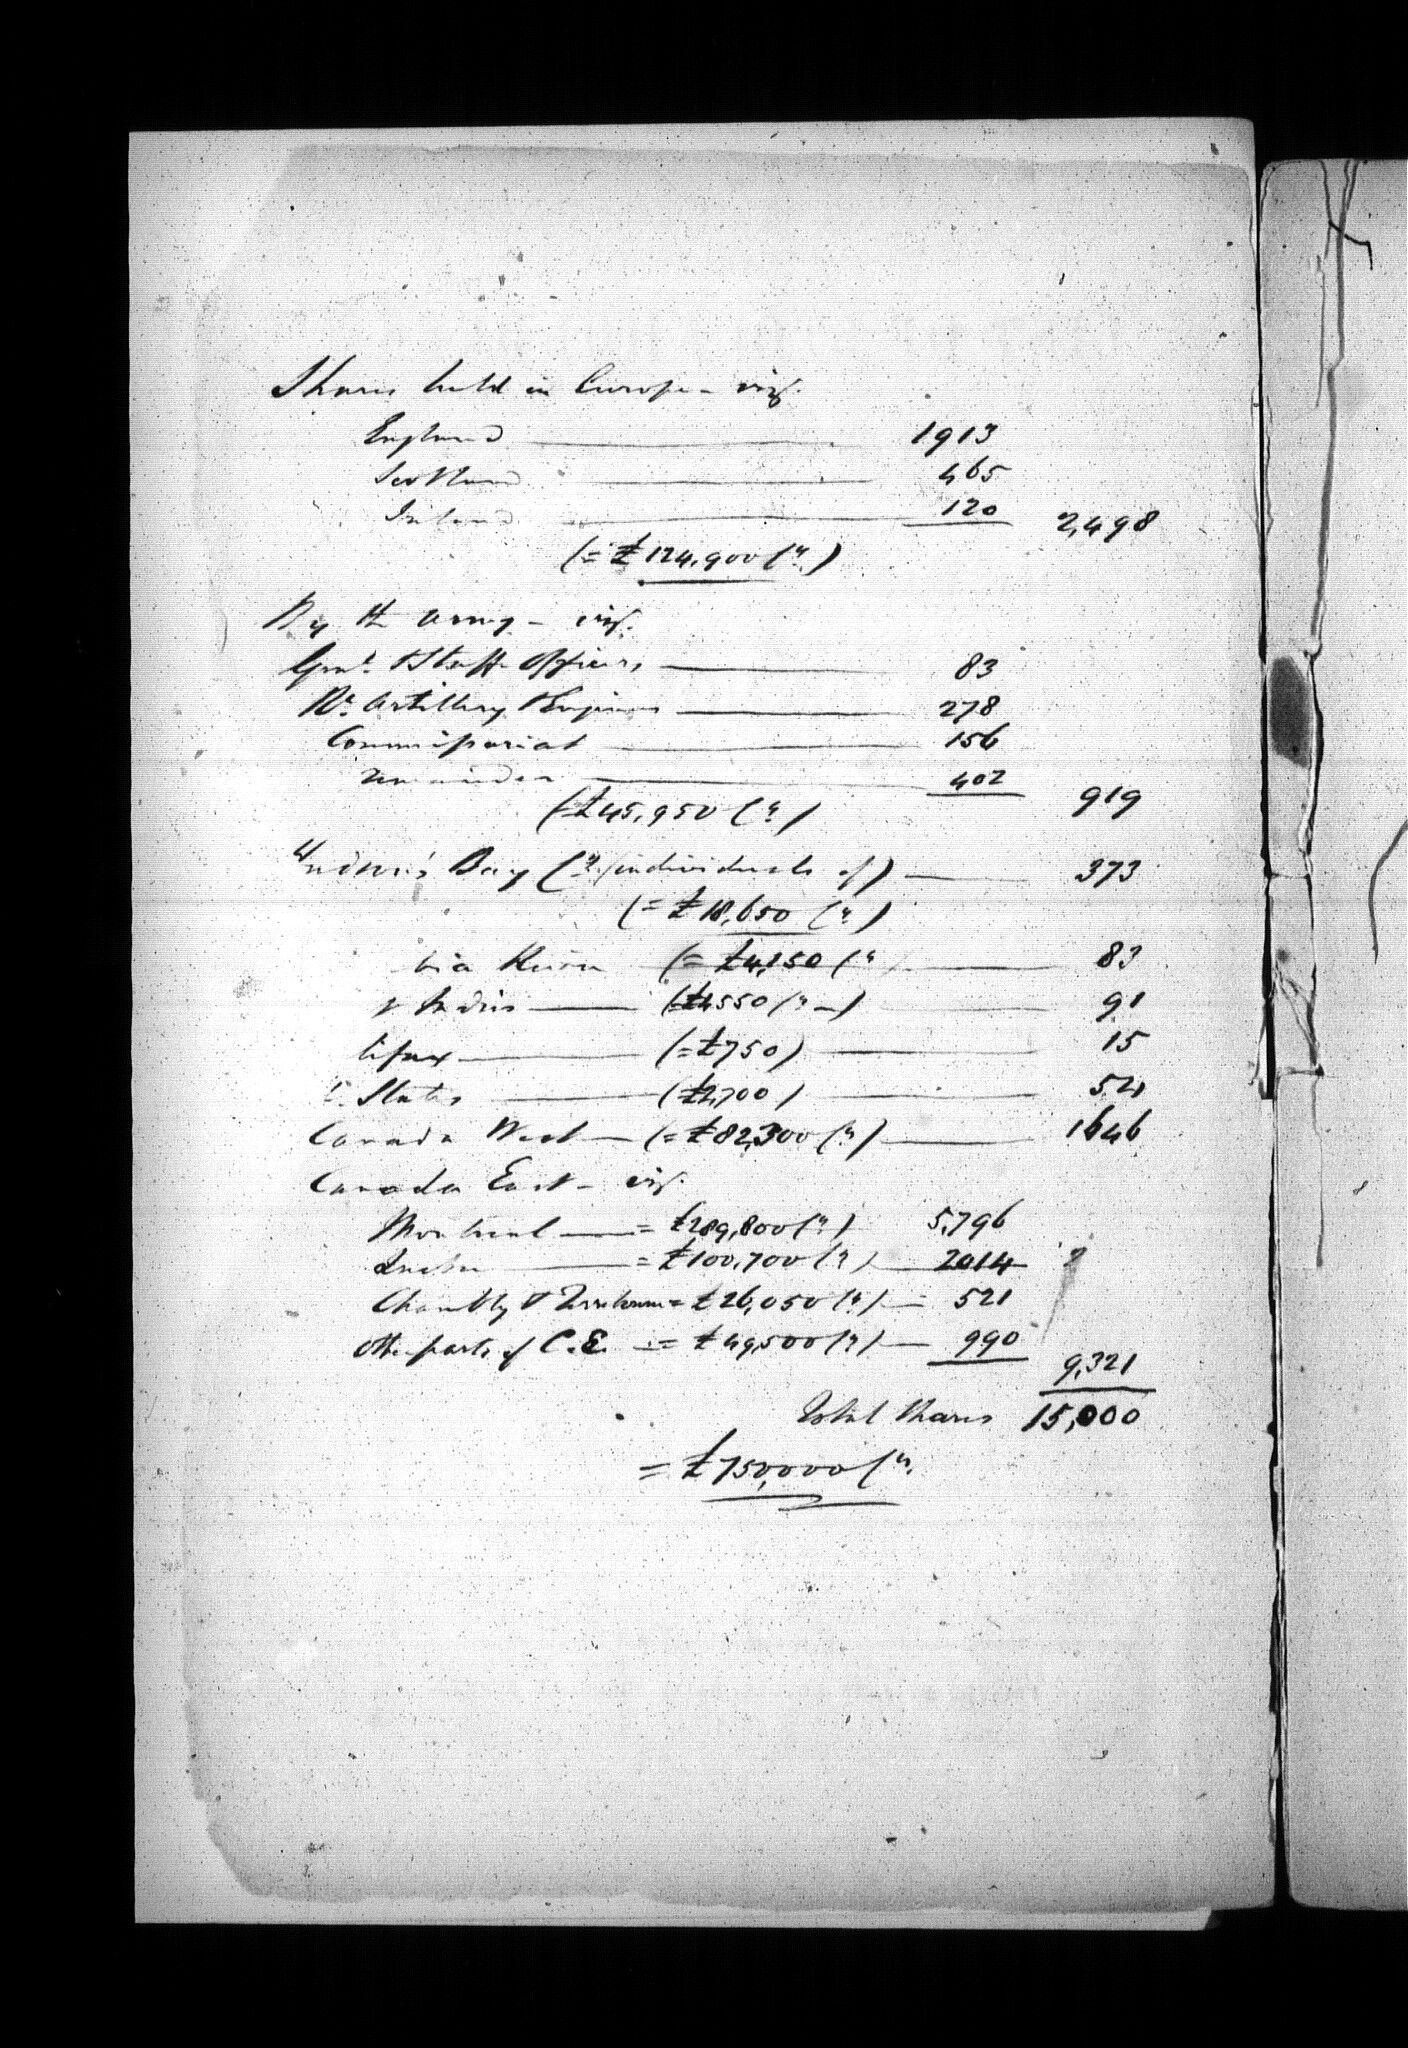 Shares held in Europe - viz.
England 1913
Scotland 465
Ireland 120 2,498
(= £124,900 Cy.)
By the Army - viz.
Genl. & Staff Officers 83
Rl. Artillery & Engineers 278
Commissariat 156
Remainder 402
(£45,950 Cy.) 919
Hudson's Bay (Cy. individuals of) 373
(= £18,650 Cy.)
(= £4,150 Cy 83
t Indies (£4550 Cy) 91
lifax (= £750) 15
U. States (£2,700) 54
Canada West - (= £82,300 Cy) 1646
Canada East - viz.
Montreal = £289,800 Cy) 5,796
Quebec = £100,700 Cy) 2014
Chambly & = £26,050 Cy) 521
Other parts of C.E. = £49,500 Cy) 990
9,321
Total shares 15,000
= £750,000 Cy.